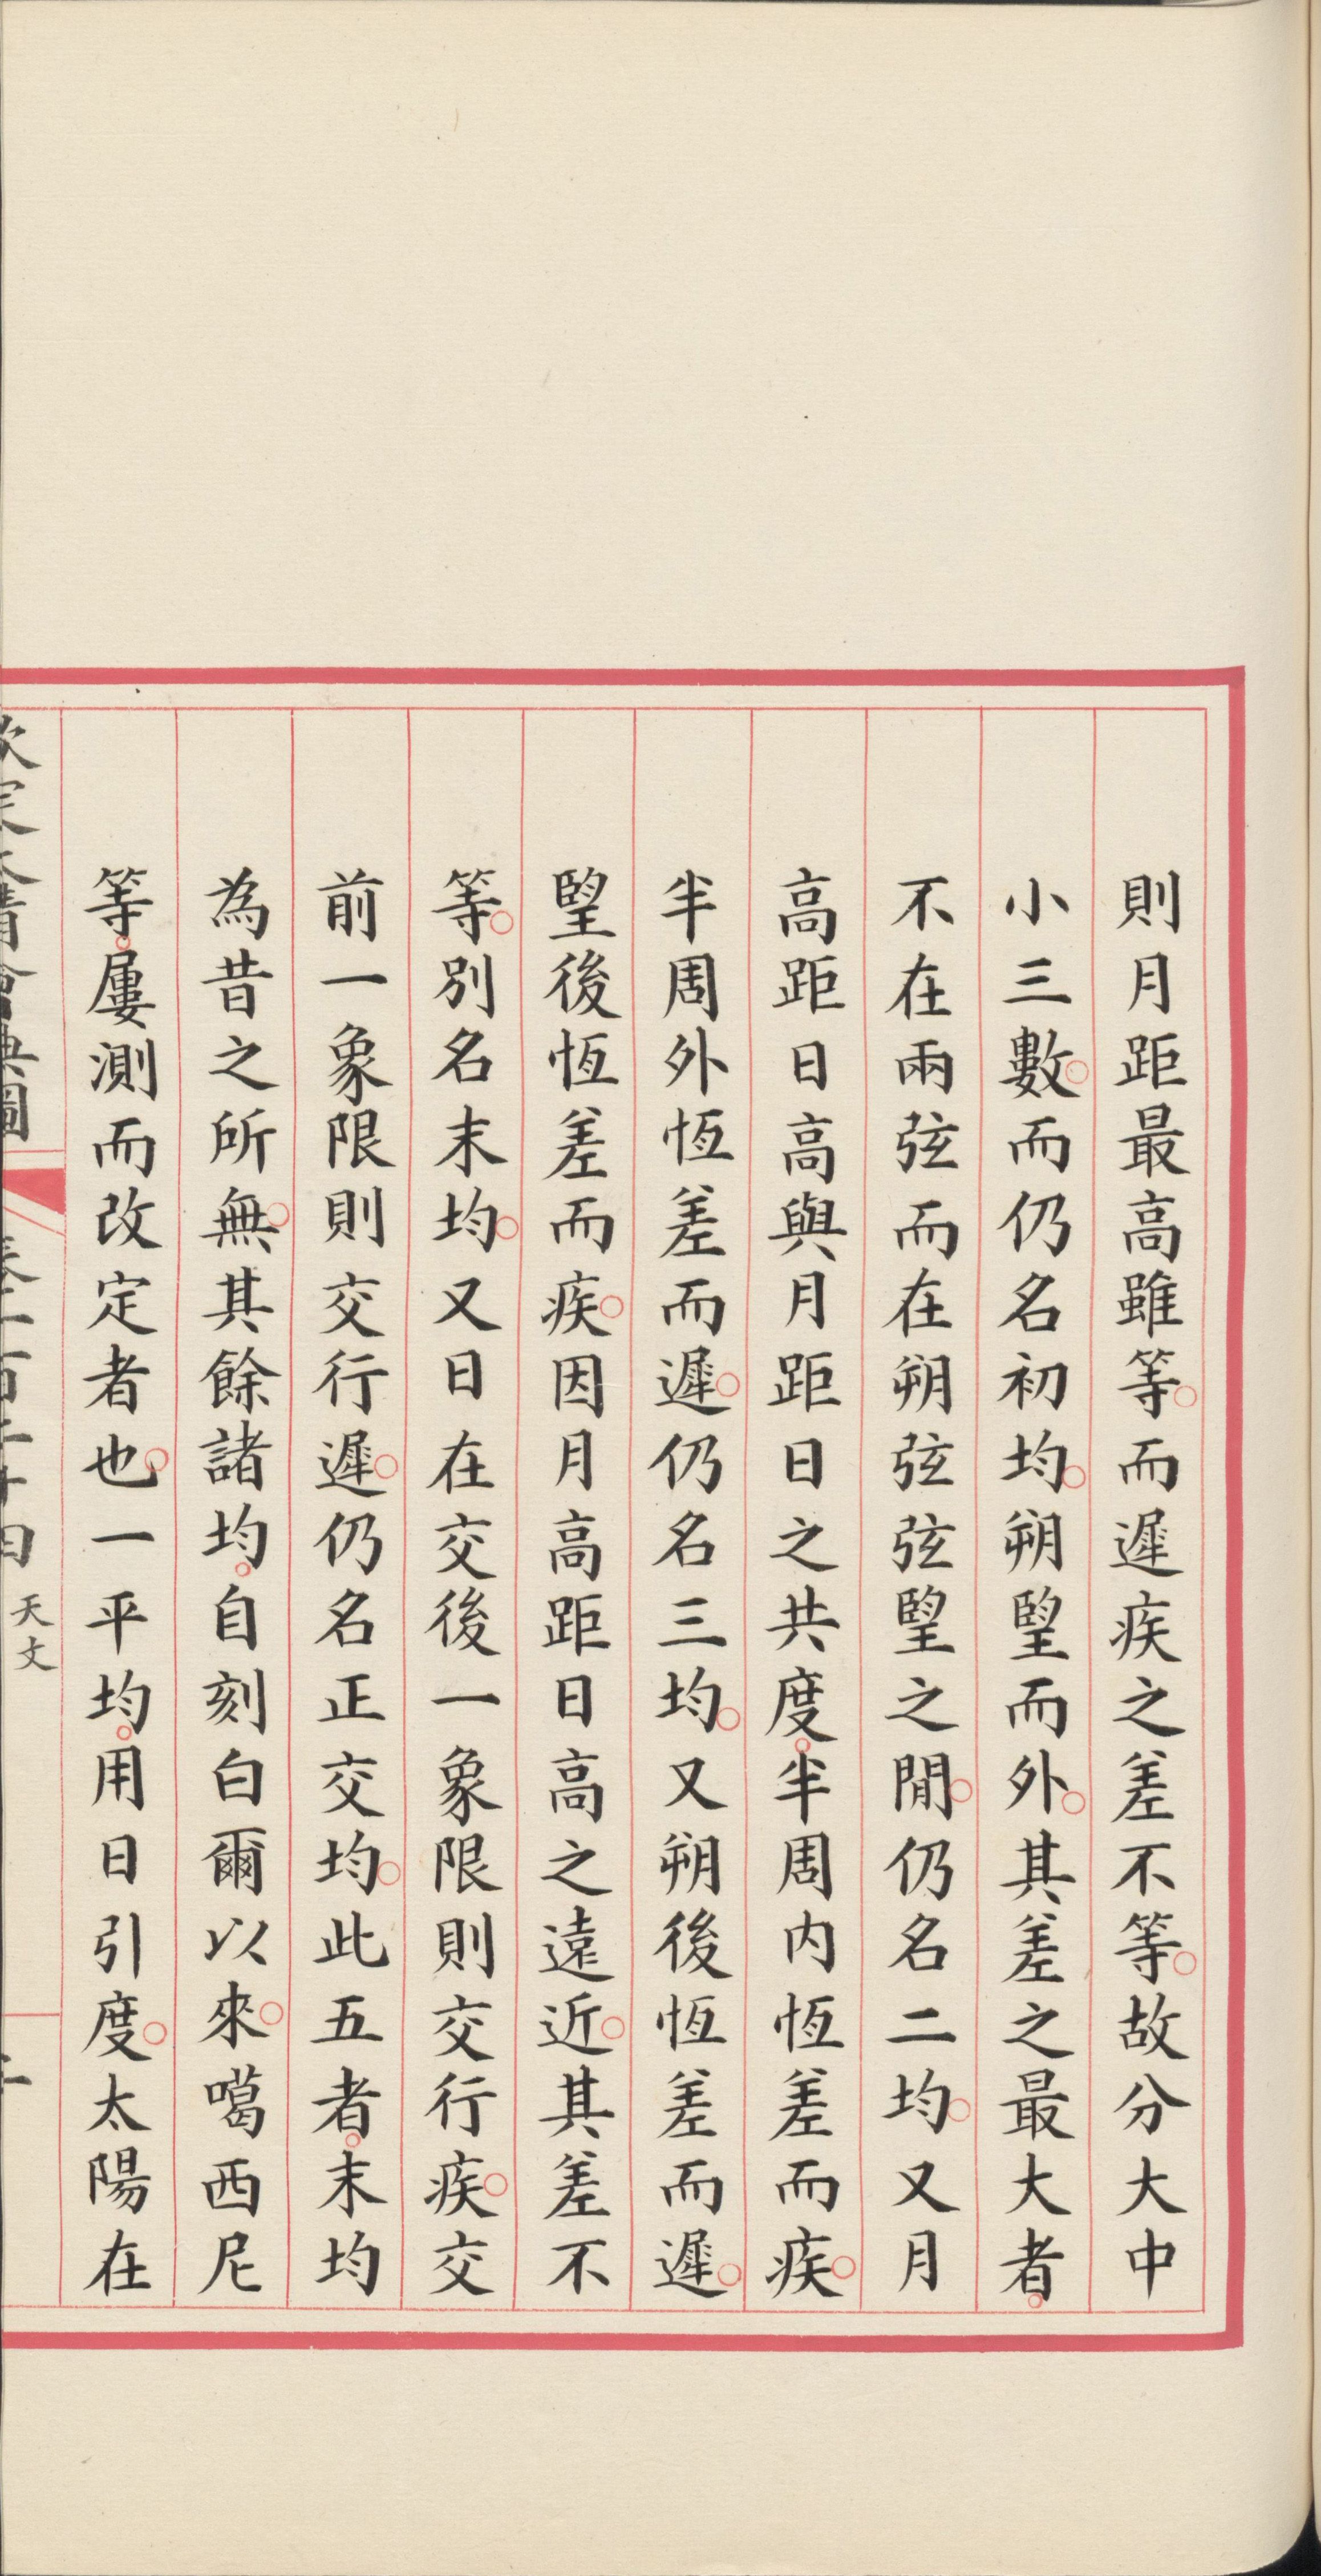 則月距最高雖等。而遲疾之差不等。故分大中
小三數。而仍名初均。朔朢而外。其差之最大者。
不在兩弦而在朔弦弦朢之閒。仍名二均。又月
高距日高與月距日之共度。半周內恆差而疾。
半周外恆差而遲。仍名三均。又朔後恆差而遲。
朢後恆差而疾。因月高距日高之遠近。其差不
等。別名末均。又日在交後一象限則交行疾。交
前一象限則交行遲。仍名正交均。此五者。末均
為昔之所無。其餘諸均。自刻白爾以來。噶西尼
等。屢測而改定者也。一平均。用日引度。太陽在
欽定大清會典圖 卷二百二十四 天文 二